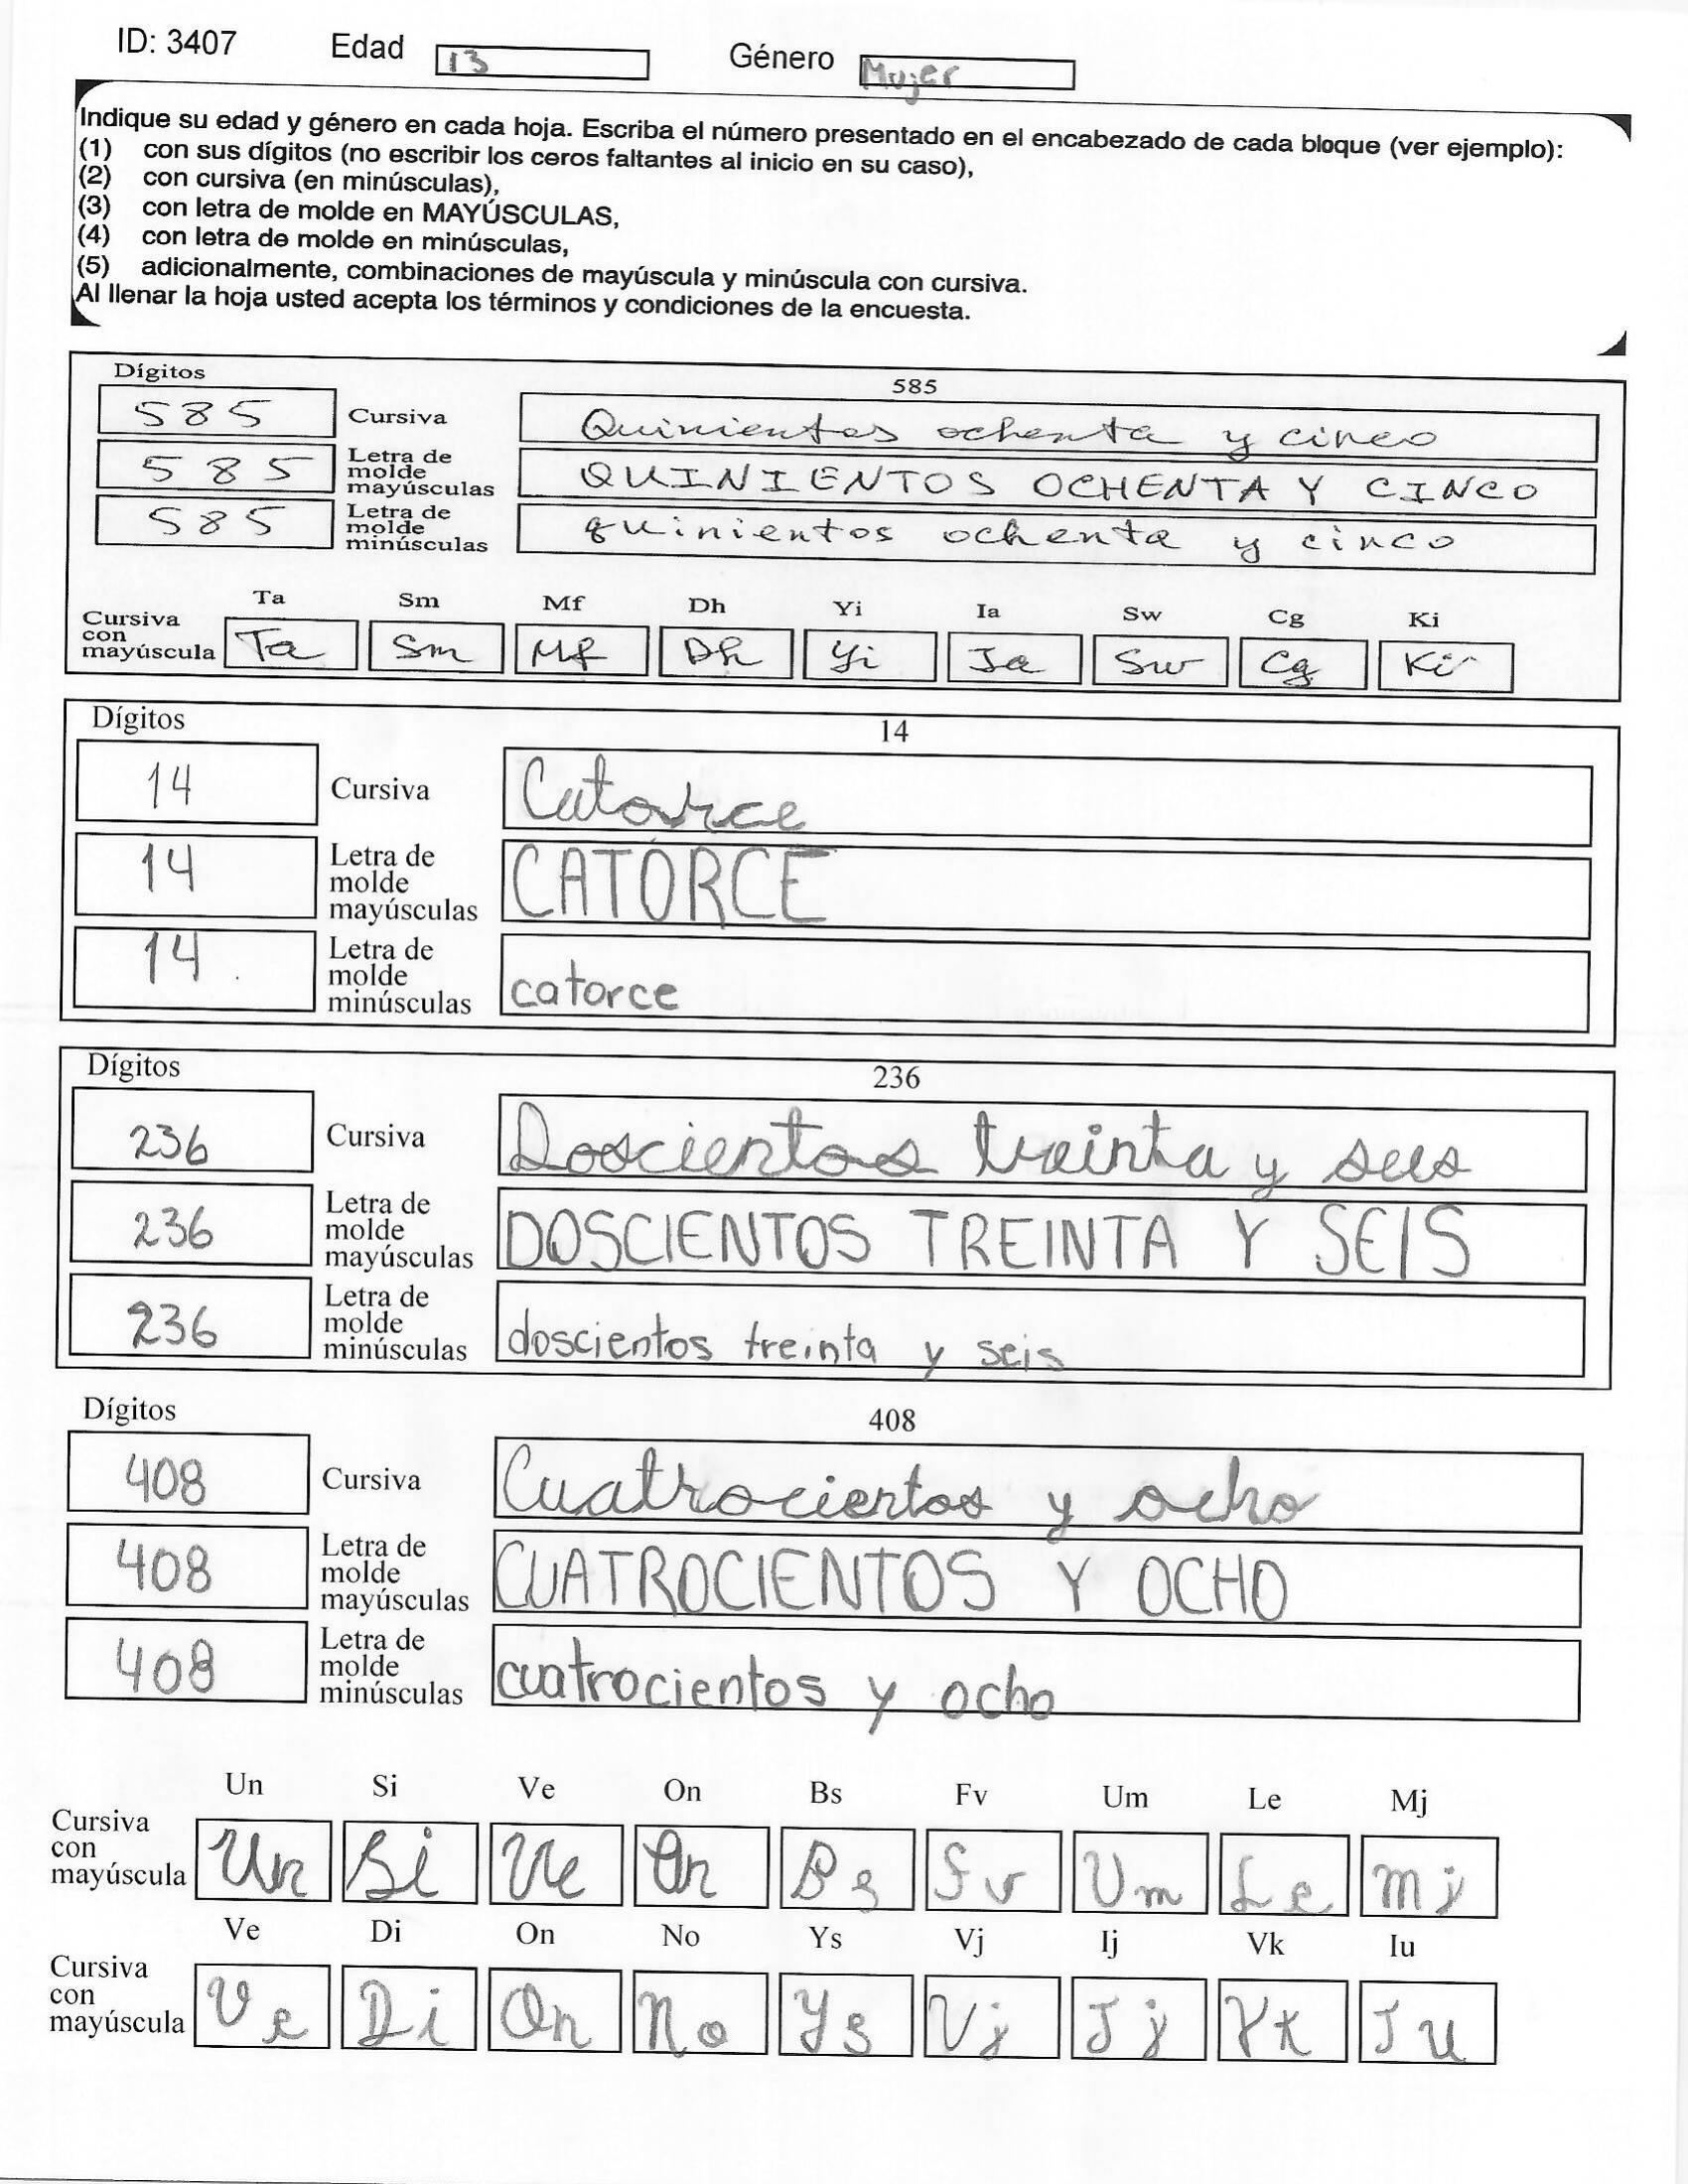 ID: 3407 Edad 13 Género Mujer
Indique su edad y género en cada hoja. Escriba el número presentado en el encabezado de cada bloque (ver ejemplo):
(1) con sus dígitos (no escribir los ceros faltantes al inicio en su caso),
(2) con cursiva (en minúsculas),
(3) con letra de molde en MAYÚSCULAS,
(4) con letra de molde en minúsculas,
(5) adicionalmente, combinaciones de mayúscula y minúscula con cursiva.
Al llenar la hoja usted acepta los términos y condiciones de la encuesta.
Dígitos 585
585 Cursiva Quinientos ochenta y cinco
585 Letra de molde mayúsculas QUINIENTOS OCHENTA Y CINCO
585 Letra de molde minúsculas quinientos ochenta y cinco
Ta Sm Mf Dh Yi Ia Sw Cg Ki
Cursiva con mayúscula Ta Sm Mf Dh Yi Ia Sw Cg Ki
Dígitos 14
14 Cursiva Catorce
14 Letra de molde mayúsculas CATORCE
14 Letra de molde minúsculas catorce
Dígitos 236
236 Cursiva Doscientos treinta y seis
236 Letra de molde mayúsculas DOSCIENTOS TREINTA Y SEIS
236 Letra de molde minúsculas doscientos treinta y seis
Dígitos 408
408 Cursiva Cuatrocientos y ocho
408 Letra de molde mayúsculas CUATROCIENTOS Y OCHO
408 Letra de molde minúsculas cuatrocientos y ocho
Un Si Ve On Bs Fv Um Le Mj
Cursiva con mayúscula Un Si Ve On Bs Fv Um Le Mj
Ve Di On No Ys Vj Ij Vk Iu
Cursiva con mayúscula Ve Di On No Ys Vj Ij Vk Iu